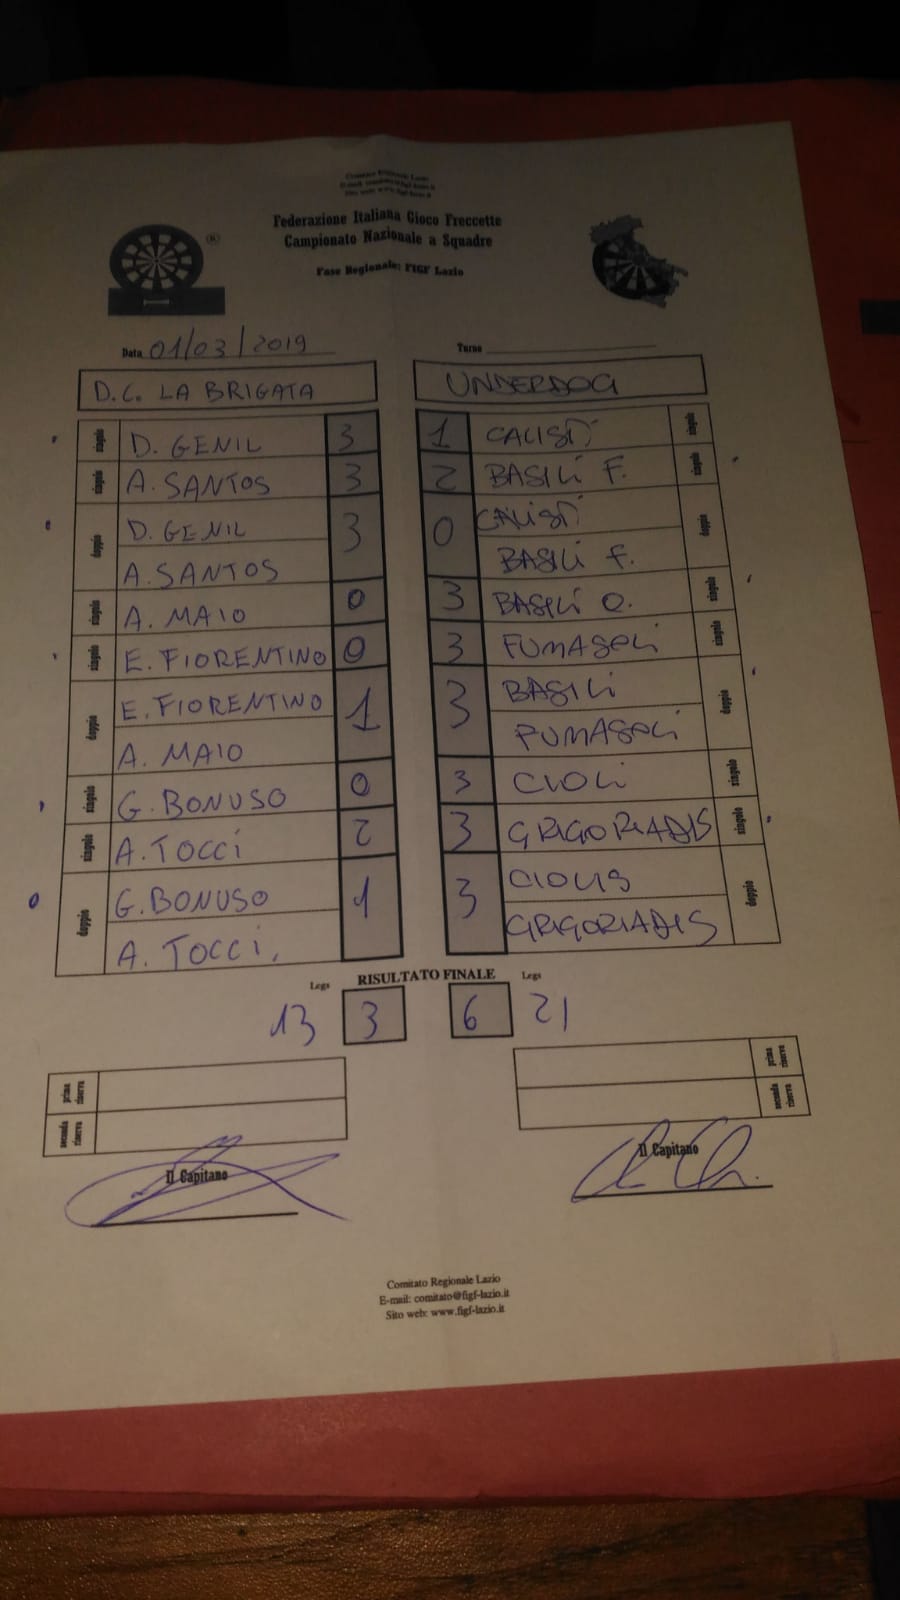 Comitato Regionale Lazio
E-mail: comitato@figf-lazio.it
Sito web: www.figf-lazio.it
Federazione Italiana Gioco Freccette
Campionato Nazionale a Squadre
Fase Regionale: FIGF Lazio
®
Data 01/03/2019 Turno
D.C. LA BRIGATA UNDERDOG
singolo D. GENIL 3 1 CALISTI singolo
singolo A. SANTOS 3 2 BASILI F. singolo
doppio D. GENIL 3 0 CALISTI doppio
A. SANTOS BASILI F.
singolo A. MAIO 0 3 BASILI O. singolo
singolo E. FIORENTINO 0 3 FUMASOLI singolo
doppio E. FIORENTINO 1 3 BASILI doppio
A. MAIO FUMASOLI
singolo G. BONUSO 0 3 CIOLI singolo
singolo A. TOCCI 2 3 GRIGORIADIS singolo
doppio G. BONUSO 1 3 doppio
A. TOCCI. GRIGORIADIS
Legs RISULTATO FINALE Legs
13 3 6 21
prima riserva prima riserva
seconda riserva seconda riserva
Il Capitano Il Capitano
Comitato Regionale Lazio
E-mail: comitato@figf-lazio.it
Sito web: www.figf-lazio.it